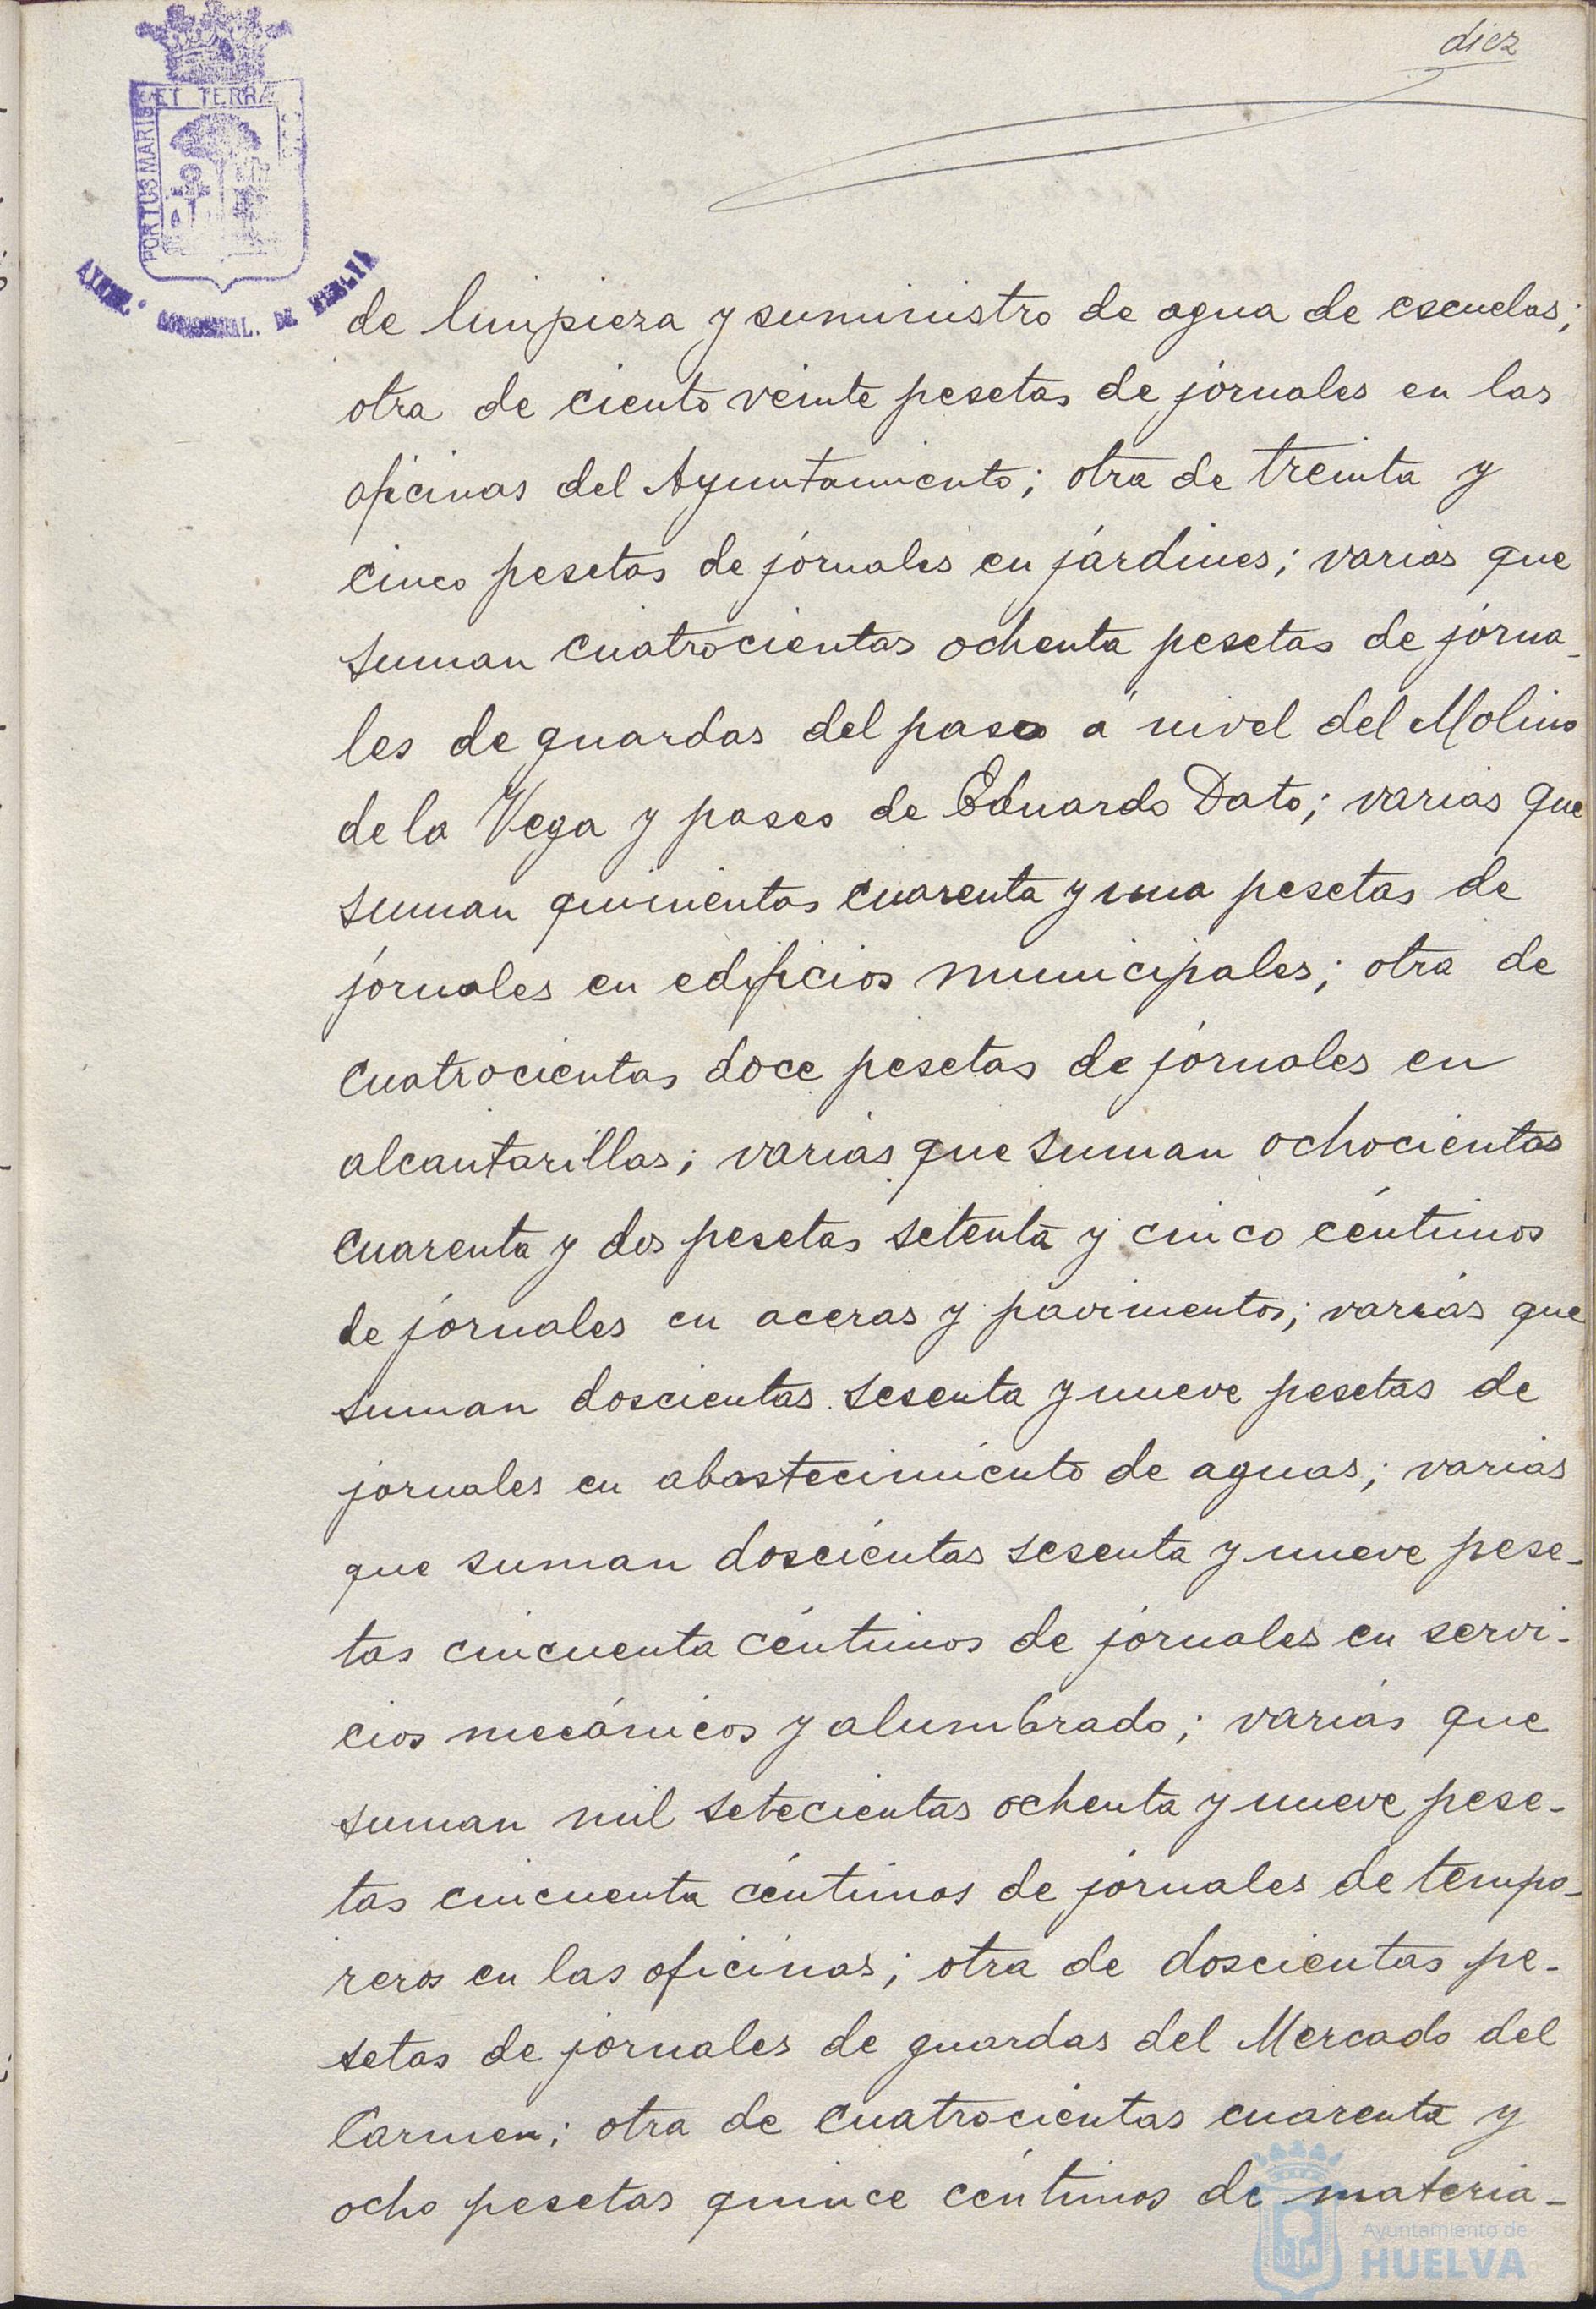 diez
ET TERRAE
PORTUS MARIS
AYUNT. CONSTITUCIONAL. DE HUELVA
de limpieza y suministro de agua de escuelas;
otra de ciento veinte pesetas de jornales en las
oficinas del Ayuntamiento; otra de treinta y
cinco pesetas de jornales en jardines; varias que
suman cuatrocientas ochenta pesetas de jorna-
les de guardas del paso a nivel del Molino
de la Vega y paseo de Eduardo Dato; varias que
suman quinientas cuarenta y una pesetas de
jornales en edificios municipales; otra de
cuatrocientas doce pesetas de jornales en
alcantarillas; varias que suman ochocientas
cuarenta y dos pesetas setenta y cinco céntimos
de jornales en aceras y pavimentos; varias que
suman doscientas sesenta y nueve pesetas de
jornales en abastecimiento de aguas; varias
que suman doscientas sesenta y nueve pese-
tas cincuenta céntimos de jornales en servi-
cios mecánicos y alumbrado; varias que
suman mil setecientas ochenta y nueve pese-
tas cincuenta céntimos de jornales de tempo-
reros en las oficinas; otra de doscientas pe-
setas de jornales de guardas del Mercado del
Carmen; otra de cuatrocientas cuarenta y
ocho pesetas quince céntimos de materia-
Ayuntamiento de
HUELVA